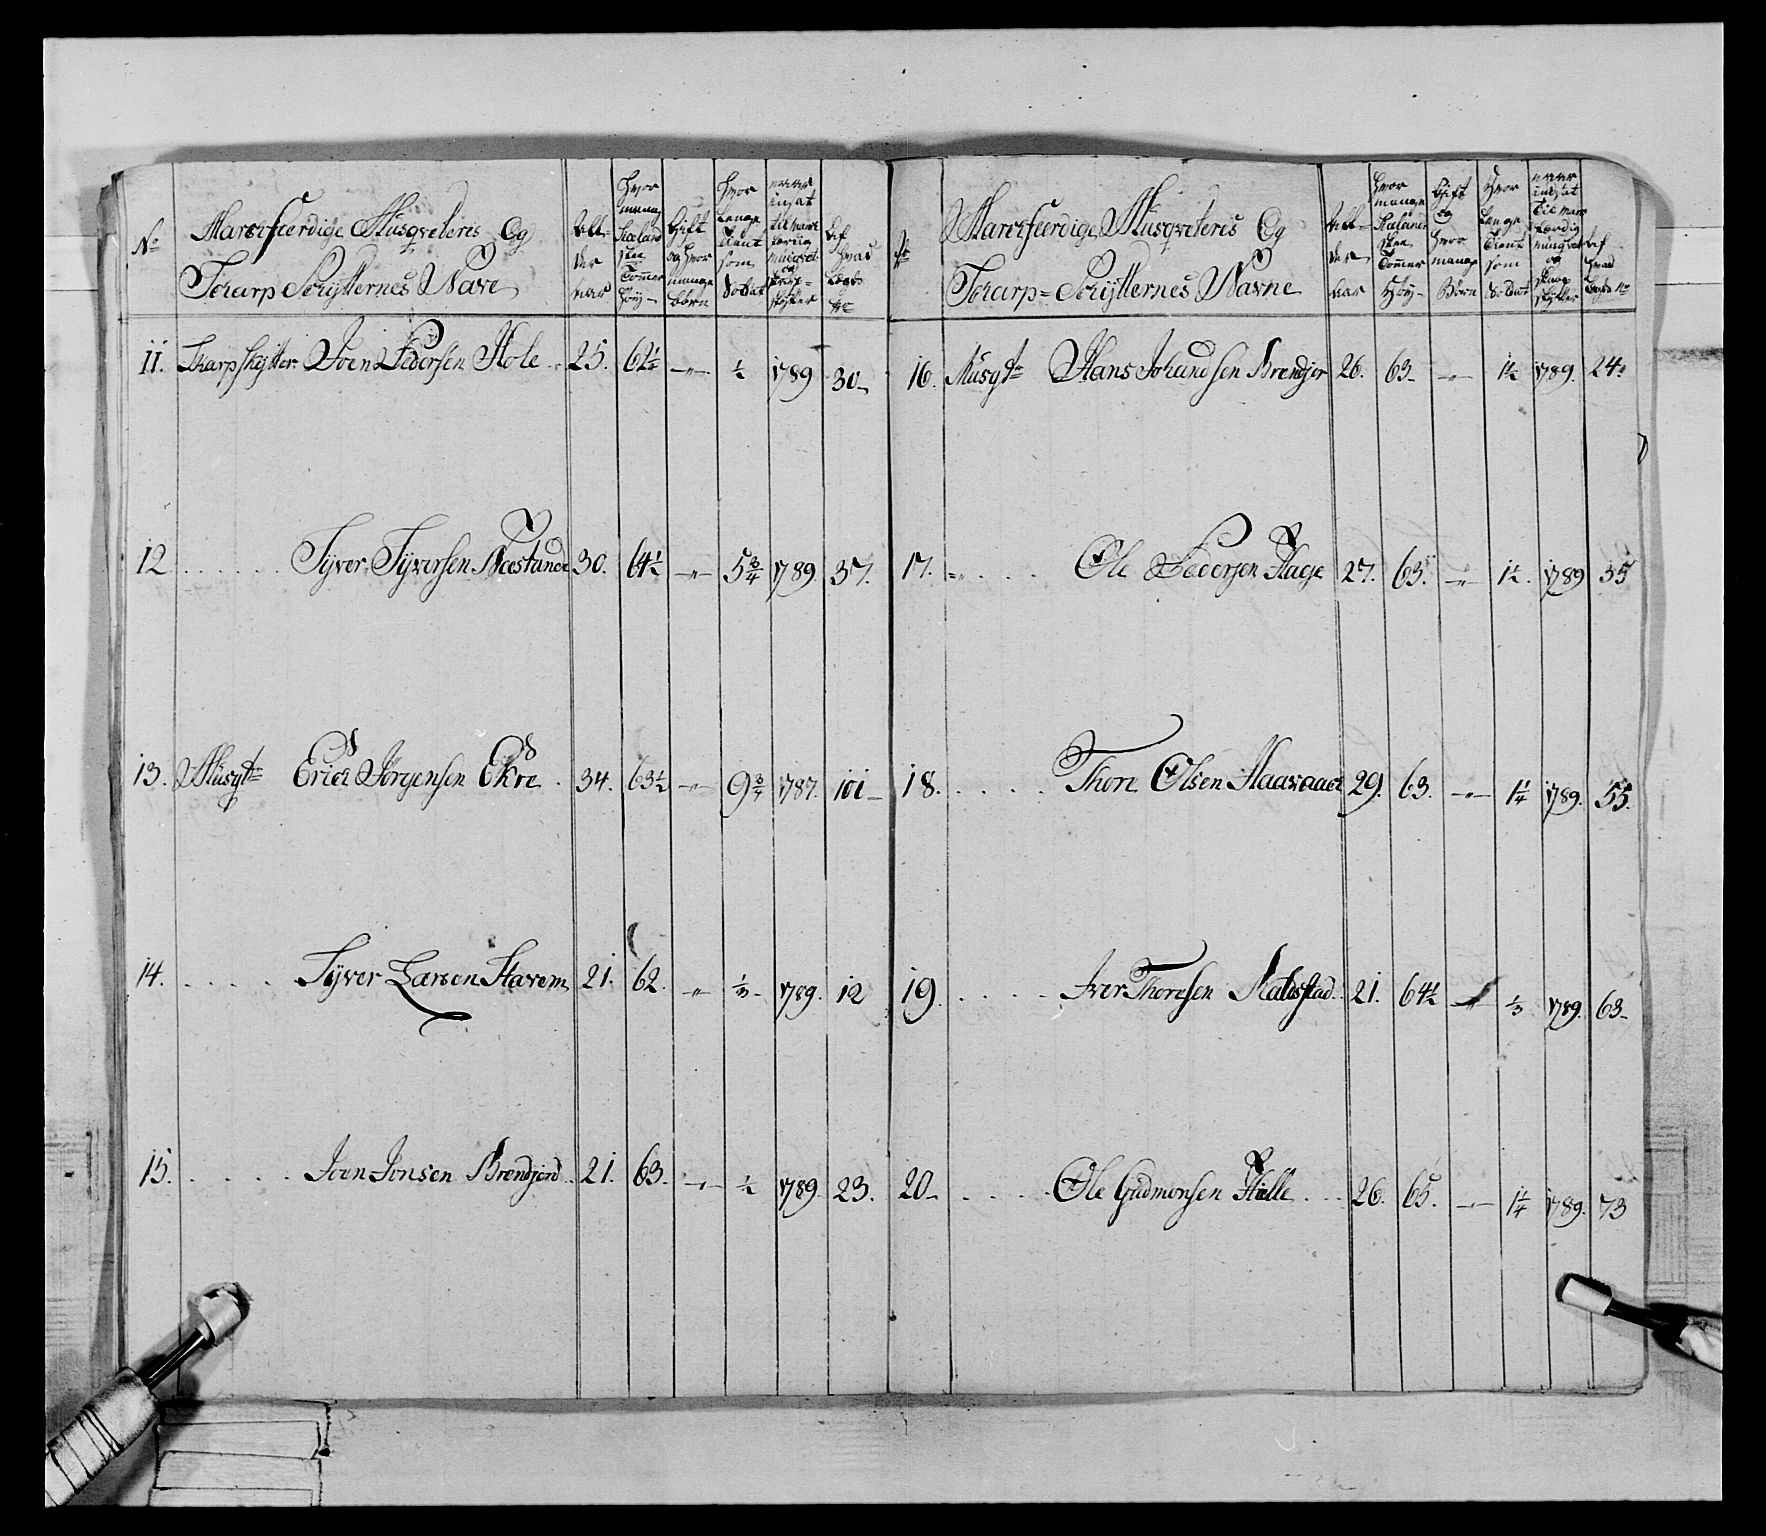 No
Marchfærdige Musqveteris Og
Scharp Schytternes Navne
Alle-
der
aar
hvor
mange
Siælands
ske
Tommer
høy
Gift
og hvor
mange
børn
hvor
lenge
tient
som
Soldat
11. Skarpskytter Joen Pedersen Hole 25. 62 1/4 -"- 1/2 1789 30-
12. . . . . . Syver Syversen Næstande 30. 64 1/2 -"- 5 3/4 1789. 37.
13. Musqt Erich Jørgensen Ekre . 34. 63 1/2 -"- 9 3/4 1787. 101-
14. . . . . Syver Larsen Stavem 21. 62. -"- 1/3 1789. 12
15. . . . . . Joen Jonsen Brendjord . 21. 63. -"- 1/2 1789. 23.
No
Marchfærdige Musqveteris Og
Scharp = Schytternes Navne
Alle-
der
aar
hvor
mange
Siælands
ske
Tommer
Høy-
Gift
og
hvor
mange
Børn
hvor
lenge
tient
som
Soldat
16. Musqt Hans Johansen Brendjor 26. 63- -"- 1 1/2 1789. 24.
17. -"- . . . . Ole Pedersen Hage 27. 63. -"- 1 1/2. 1789 35
18. . . . . . Thore Olsen Haavaaer 29. 63. -"- 1 1/4 1789. 55.
19. . . . . Iver Thoresen Kabestad . 21. 64 1/2 -"- 1/3 1789. 63-
20- . . . . Ole Gudmonsen Hielle . . . 26. 65. -"- 1 1/4 1789. 73